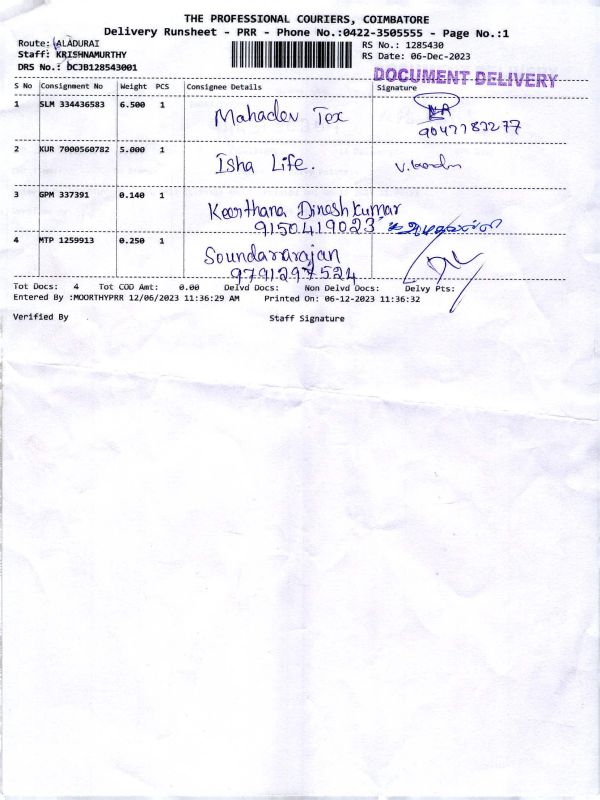 THE PROFESSIONAL COURIERS, COIMBATORE
Delivery Runsheet - PRR - Phone No.:0422-3505555 - Page No.:1
Route: ALADURAI RS No.: 1285430
Staff: KRISHNAMURTHY RS Date: 06-Dec-2023
DRS No.: DCJB128543001
DOCUMENT DELIVERY
S No Consignment No Weight PCS Consignee Details Signature
1 SLM 334436583 6.500 1 Mahadev Tex
9047783277
2 KUR 7000560782 5.000 1 Isha Life.
3 GPM 337391 0.140 1 Keerthana Dinesh Kumar
9150419023
4 MTP 1259913 0.250 1 Soundararajan
9791297524
Tot Docs: 4 Tot COD Amt: 0.00 Delvd Docs: Non Delvd Docs: Delvy Pts:
Entered By :MOORTHYPRR 12/06/2023 11:36:29 AM Printed On: 06-12-2023 11:36:32
Verified By Staff Signature